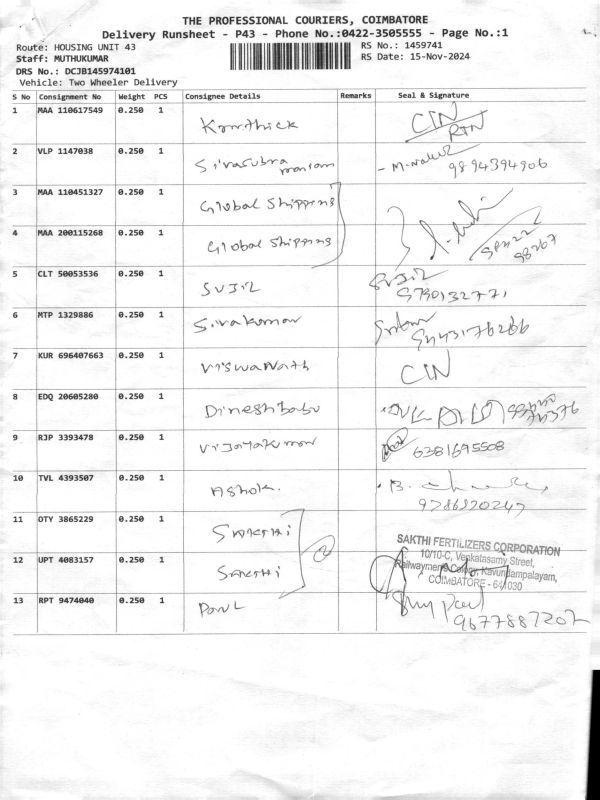 THE PROFESSIONAL COURIERS, COIMBATORE
Delivery Runsheet - P43 - Phone No.:0422-3505555 - Page No.:1
Route: HOUSING UNIT 43
RS No.: 1459741
Staff: MUTHUKUMAR
RS Date: 15-Nov-2024
DRS No.: DCJB145974101
Vehicle: Two Wheeler Delivery
S No Consignment No Weight PCS Consignee Details Remarks Seal & Signature
1 MAA 110617549 0.250 1 Karthick CIN
RTN
2 VLP 1147038 0.250 1 Sivasubra
maniam
9894394906
3 MAA 110451327 0.250 1 Global Shipping
4 MAA 200115268 0.250 1 Global Shipping
98267
5 CLT 50053536 0.250 1 SUJIL SUJIL
6 MTP 1329886 0.250 1 Sivakumar
9443176266
7 KUR 696407663 0.250 1 Viswanath CIN
8 EDQ 20605280 0.250 1 Dineshbabu
9 RJP 3393478 0.250 1 Vijayakumar 6381695508
10 TVL 4393507 0.250 1 Ashok.
11 OTY 3865229 0.250 1 SAKTHI
2
12 UPT 4083157 0.250 1 SAKTHI
SAKTHI FERTILIZERS CORPORATION
10/10-C, Venkatasamy Street,
Railwaymens Colony, Kavundampalayam,
COIMBATORE - 641030
13 RPT 9474040 0.250 1 Paul
9677887202